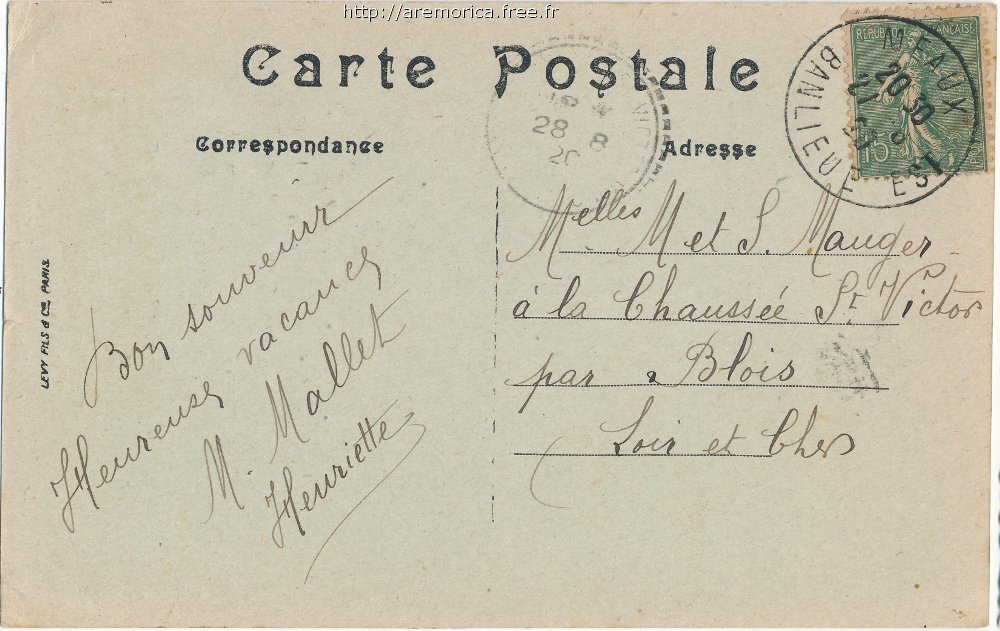 http://aremorica.free.fr
Carte Postale
Correspondance
Adresse
REPUBLIQUE FRANÇAISE
15
MEAUX
BANLIEUE EST
20 30
28 8
20
LEVY FILS & Cie PARIS
Bon souvenir
Heureuses vacances
M. Mallet
Henriette
Melles M et S. Mauger
à la Chaussée St Victor
par Blois
Loir et Cher